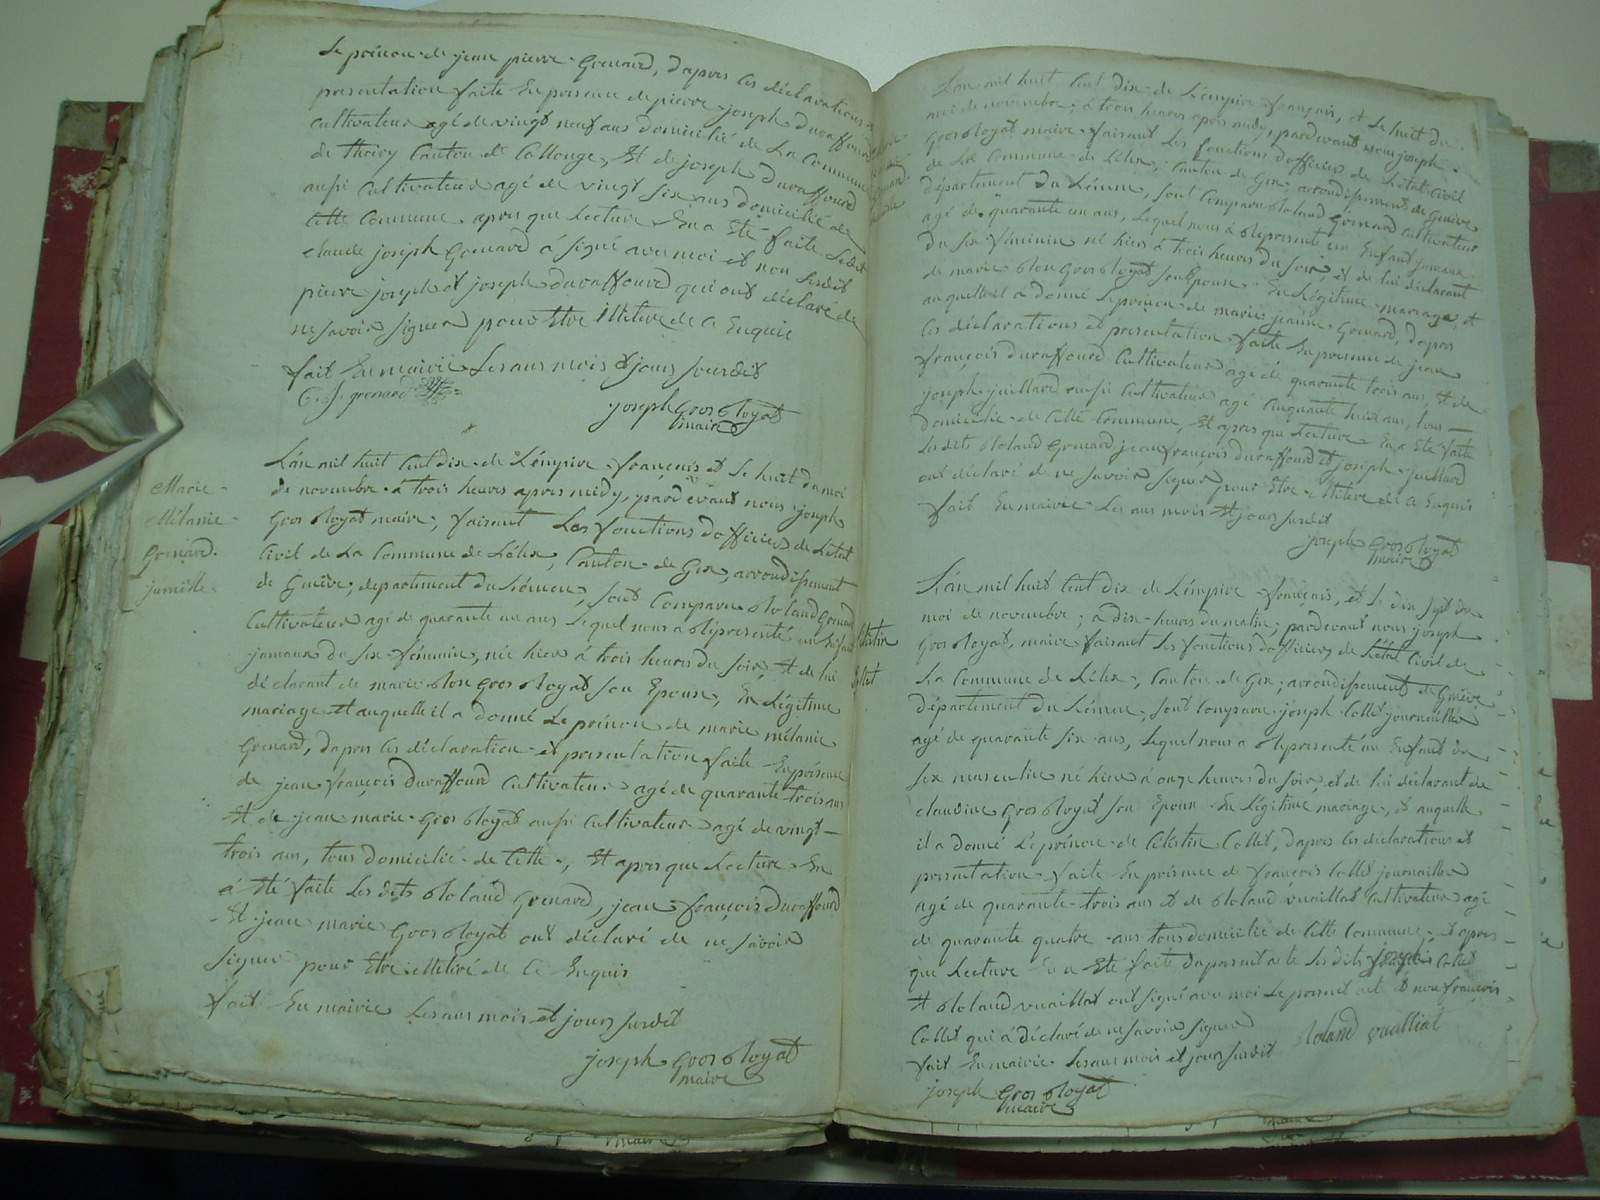 Le prénon de jean pierre Grenard, dapres les déclarations et
presentation faite En présence de pierre joseph duraffourd
Cultivateur agé de vingt neuf ans domicilié de La Commune
de Thoiry Canton de Collonge, Et de joseph duraffourd
aussi Cultivateur agé de vingt six ans domicilié de
Cette Commune, apres que Lecture En a Eté faite Ledit
Claude joseph Grenard à signé avec moi et non Lesdit
pierre joseph et joseph duraffourd qui ont déclaré de
ne savoir signer pour Etre de Ce Enquis
fait En mairie Les ans mois et jours susdit
C. J. grenard
joseph Gros Royat
maire
Marie
Mélanie
Grenard.
jumelle
L'an mil huit Cent dix de L'émpire français et Le huit du moi
de novembre à trois heures apres midy, pardevant nous joseph
Gros Royat maire, faisant Les fonctions dofficier de Létat
Civil de La Commune de Lélex, Canton de Gex, arrondissement
de Genève, département du Léman, sont Comparu Roland Grenard
Cultivateur agé de quarante un ans Lequel nous a Représenté un Enfant
jumaux du sex féminin, née hier à trois heures du soir, Et de lui
déclarant de marie Gros Royat son Epouse, En Légitime
mariage Et auquelle il a donné Le prénon de marie mélanie
Grenard, dapres les déclaration et presentation faite En présence
de jean françois duraffourd Cultivateur agé de quarante trois ans
Et de jean marie Gros Royat aussi Cultivateur agé de vingt
trois ans, tous domicilié de Cette, Et apres que Lecture En
à Eté faite Les dits Roland Grenard, jean françois duraffourd
Et jean marie Gros Royat ont déclaré de ne savoir
signer pour Etre de Ce Enquis
fait En mairie Les ans mois et jours susdit
joseph Gros Royat
maire
L'an mil huit Cent dix de L'émpire français, et Le huit du
moi de novembre, à trois heures apres midy, pardevant nous joseph
Gros Royat maire faisant Les fonctions dofficier de L'état Civil
de La Commune de Lélex, Canton de Gex, arrondissement de Genève
département du Léman, sont Comparu Roland Grenard Cultivateur
agé de quarante un ans, Lequel nous à Représenté un Enfant jumaux
du sex féminin né hier à trois heures du soir, et de lui déclarant
de marie Gros Royat son Epouse En Légitime mariage, et
auquelle il à donné Le prénon de marie jeanne Grenard, dapres
Les déclarations et présentation faite En présence de jean
françois duraffourd Cultivateur agé de quarante trois ans, Et de
joseph juillard aussi Cultivateur agé Cinquante huit ans, tous
domicilié de Cette Commune, Et apres que Lecture En a Eté faite
Les dits Roland Grenard jean françois duraffourd et joseph juillard
ont déclaré de ne savoir signer pour Etre de Ce Enquis
fait En mairie Les ans mois Et jours susdit
joseph Gros Royat
maire
L'an mil huit Cent dix de L'émpire français, et Le dix sept du
moi de novembre, à dix heures du matin, pardevant nous joseph
Gros Royat, maire faisant Les fonctions dofficier de L'état Civil de
La Commune de Lélex, Canton de Gex, arrondissement de Genève
département du Léman, sont Comparu joseph Collet journaillier
agé de quarante six ans, Lequel nous a Représenté un Enfant du
sex masculin né hier à onze heures du soir, et de lui déclarant de
claudine Gros Royat son Epouse En Légitime mariage, et auquelle
il a donné Le prénon de Célestin Collet, dapres les déclarations et
présentation faite En présence de françois Collet journaillier
agé de quarante trois ans et de Roland vuaillat Cultivateur agé
de quarante quatre ans tous domicilié de Cette Commune, et apres
que Lecture En a Eté faite du présent acte Les dits joseph Collet
et Roland vuaillat ont signé avec moi Le présent acte et non françois
Collet qui à déclaré de ne savoir signer
fait En mairie Les ans mois et jours susdit
Roland vuilliat
joseph Gros Royat
maire